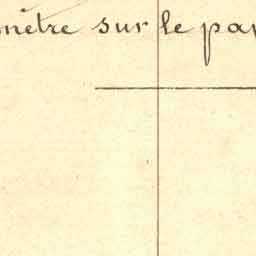 mètre sur le pap